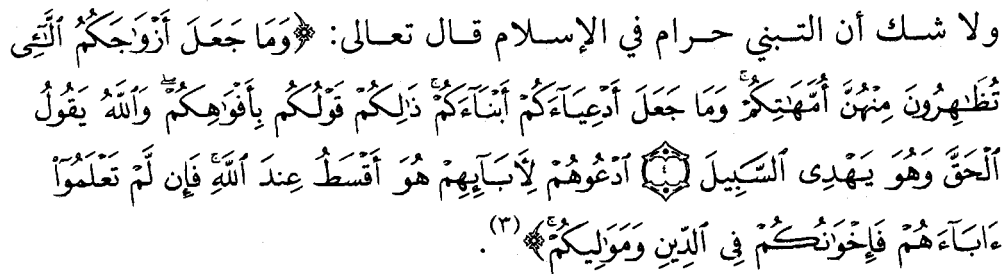 ولا شك أن التبني حرام في الإسلام قال تعالى: ﴿وَمَا جَعَلَ أَزْوَٰجَكُمُ ٱلَّٰٓـِٔى
تُظَٰهِرُونَ مِنْهُنَّ أُمَّهَٰتِكُمْ ۚ وَمَا جَعَلَ أَدْعِيَآءَكُمْ أَبْنَآءَكُمْ ۚ ذَٰلِكُمْ قَوْلُكُم بِأَفْوَٰهِكُمْ ۖ وَٱللَّهُ يَقُولُ
ٱلْحَقَّ وَهُوَ يَهْدِى ٱلسَّبِيلَ ۝٤ ٱدْعُوهُمْ لِأَبَآئِهِمْ هُوَ أَقْسَطُ عِندَ ٱللَّهِ ۚ فَإِن لَّمْ تَعْلَمُوٓا۟
ءَابَآءَهُمْ فَإِخْوَٰنُكُمْ فِى ٱلدِّينِ وَمَوَٰلِيكُمْ ۚ﴾(٣).